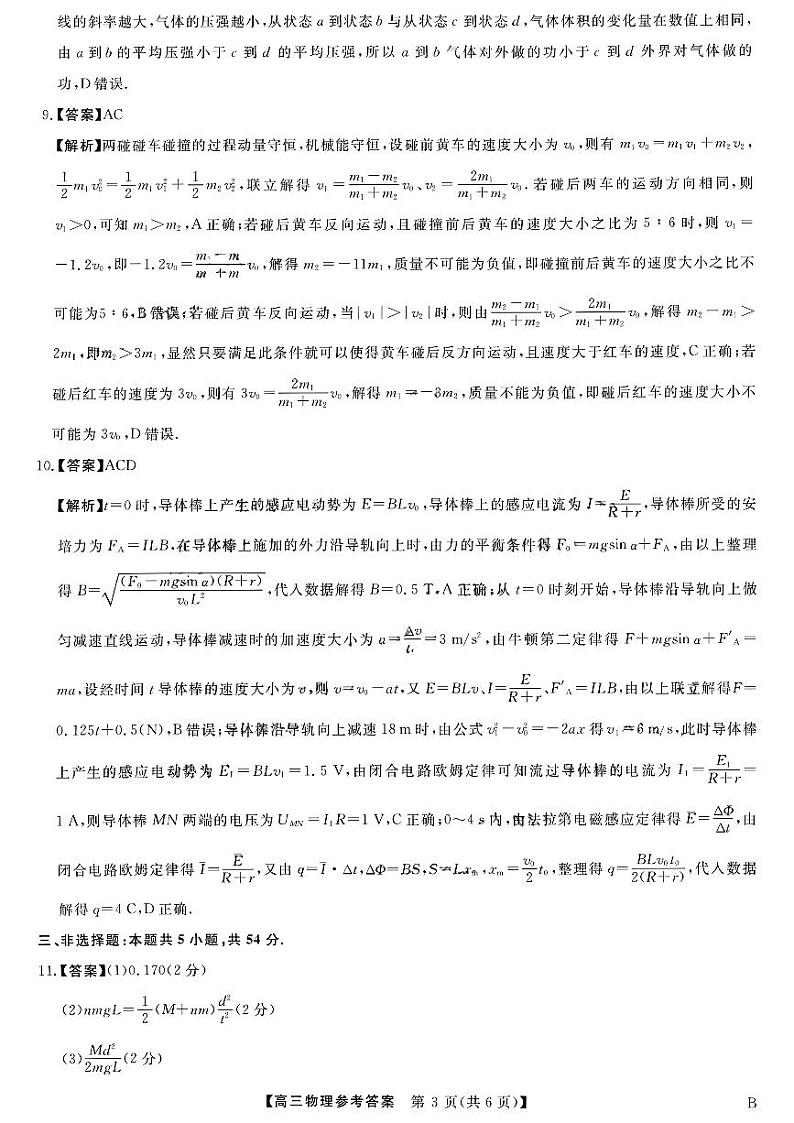 线的斜率越大,气体的压强越小,从状态 a 到状态 b 与从状态 c 到状态 d,气体体积的变化量在数值上相同,
由 a 到 b 的平均压强小于 c 到 d 的平均压强,所以 a 到 b 气体对外做的功小于 c 到 d 外界对气体做的
功,D 错误.
9.【答案】AC
【解析】两碰碰车碰撞的过程动量守恒,机械能守恒,设碰前黄车的速度大小为 v₀,则有 m₁v₀=m₁v₁+m₂v₂,
1/2 m₁v₀²=1/2 m₁v₁²+1/2 m₂v₂²,联立解得 v₁=(m₁-m₂)/(m₁+m₂) v₀、v₂=2m₁/(m₁+m₂) v₀. 若碰后两车的运动方向相同,则
v₁>0,可知 m₁>m₂,A 正确;若碰后黄车反向运动,且碰撞前后黄车的速度大小之比为 5:6 时,则 v₁=
-1.2v₀,即-1.2v₀=(m-m)/(m+m) v₀,解得 m₂=-11m₁,质量不可能为负值,即碰撞前后黄车的速度大小之比不
可能为5:6,B 错误;若碰后黄车反向运动,当|v₁|>|v₂|时,则由 (m₂-m₁)/(m₁+m₂) v₀>2m₁/(m₁+m₂) v₀,解得 m₂-m₁>
2m₁,即m₂>3m₁,显然只要满足此条件就可以使得黄车碰后反方向运动,且速度大于红车的速度,C 正确;若
碰后红车的速度为 3v₀,则有 3v₀=2m₁/(m₁+m₂) v₀,解得 m₁=-3m₂,质量不能为负值,即碰后红车的速度大小不
可能为 3v₀,D 错误.
10.【答案】ACD
【解析】t=0 时,导体棒上产生的感应电动势为 E=BLv₀,导体棒上的感应电流为 I=E/(R+r),导体棒所受的安
培力为 F_A=ILB,在导体棒上施加的外力沿导轨向上时,由力的平衡条件得 F₀=mgsin α+F_A,由以上整理
得 B=√((F₀-mgsin α)(R+r)/(v₀L²)),代入数据解得 B=0.5 T,A 正确;从 t=0 时刻开始,导体棒沿导轨向上做
匀减速直线运动,导体棒减速时的加速度大小为 a=Δv/t₀=3 m/s²,由牛顿第二定律得 F+mgsin α+F′_A=
ma,设经时间 t 导体棒的速度大小为 v,则 v=v₀-at,又 E=BLv、I=E/(R+r)、F′_A=ILB,由以上联立解得F=
0.125t+0.5(N),B 错误;导体棒沿导轨向上减速 18 m 时,由公式 v₁²-v₀²=-2ax 得 v₁=6 m/s,此时导体棒
上产生的感应电动势为 E₁=BLv₁=1.5 V,由闭合电路欧姆定律可知流过导体棒的电流为 I₁=E₁/(R+r)=
1 A,则导体棒 MN 两端的电压为 U_MN=I₁R=1 V,C 正确;0~4 s 内,由法拉第电磁感应定律得 E̅=ΔΦ/Δt,由
闭合电路欧姆定律得 I̅=E̅/(R+r),又由 q=I̅·Δt,ΔΦ=BS,S=Lx_m,x_m=v₀/2 t₀,整理得 q=BLv₀t₀/(2(R+r)),代入数据
解得 q=4 C,D 正确.
三、非选择题:本题共 5 小题,共 54 分.
11.【答案】(1)0.170(2 分)
(2)nmgL=1/2 (M+nm) d²/t² (2 分)
(3)Md²/(2mgL) (2 分)
【高三物理参考答案 第 3 页(共 6 页)】 B